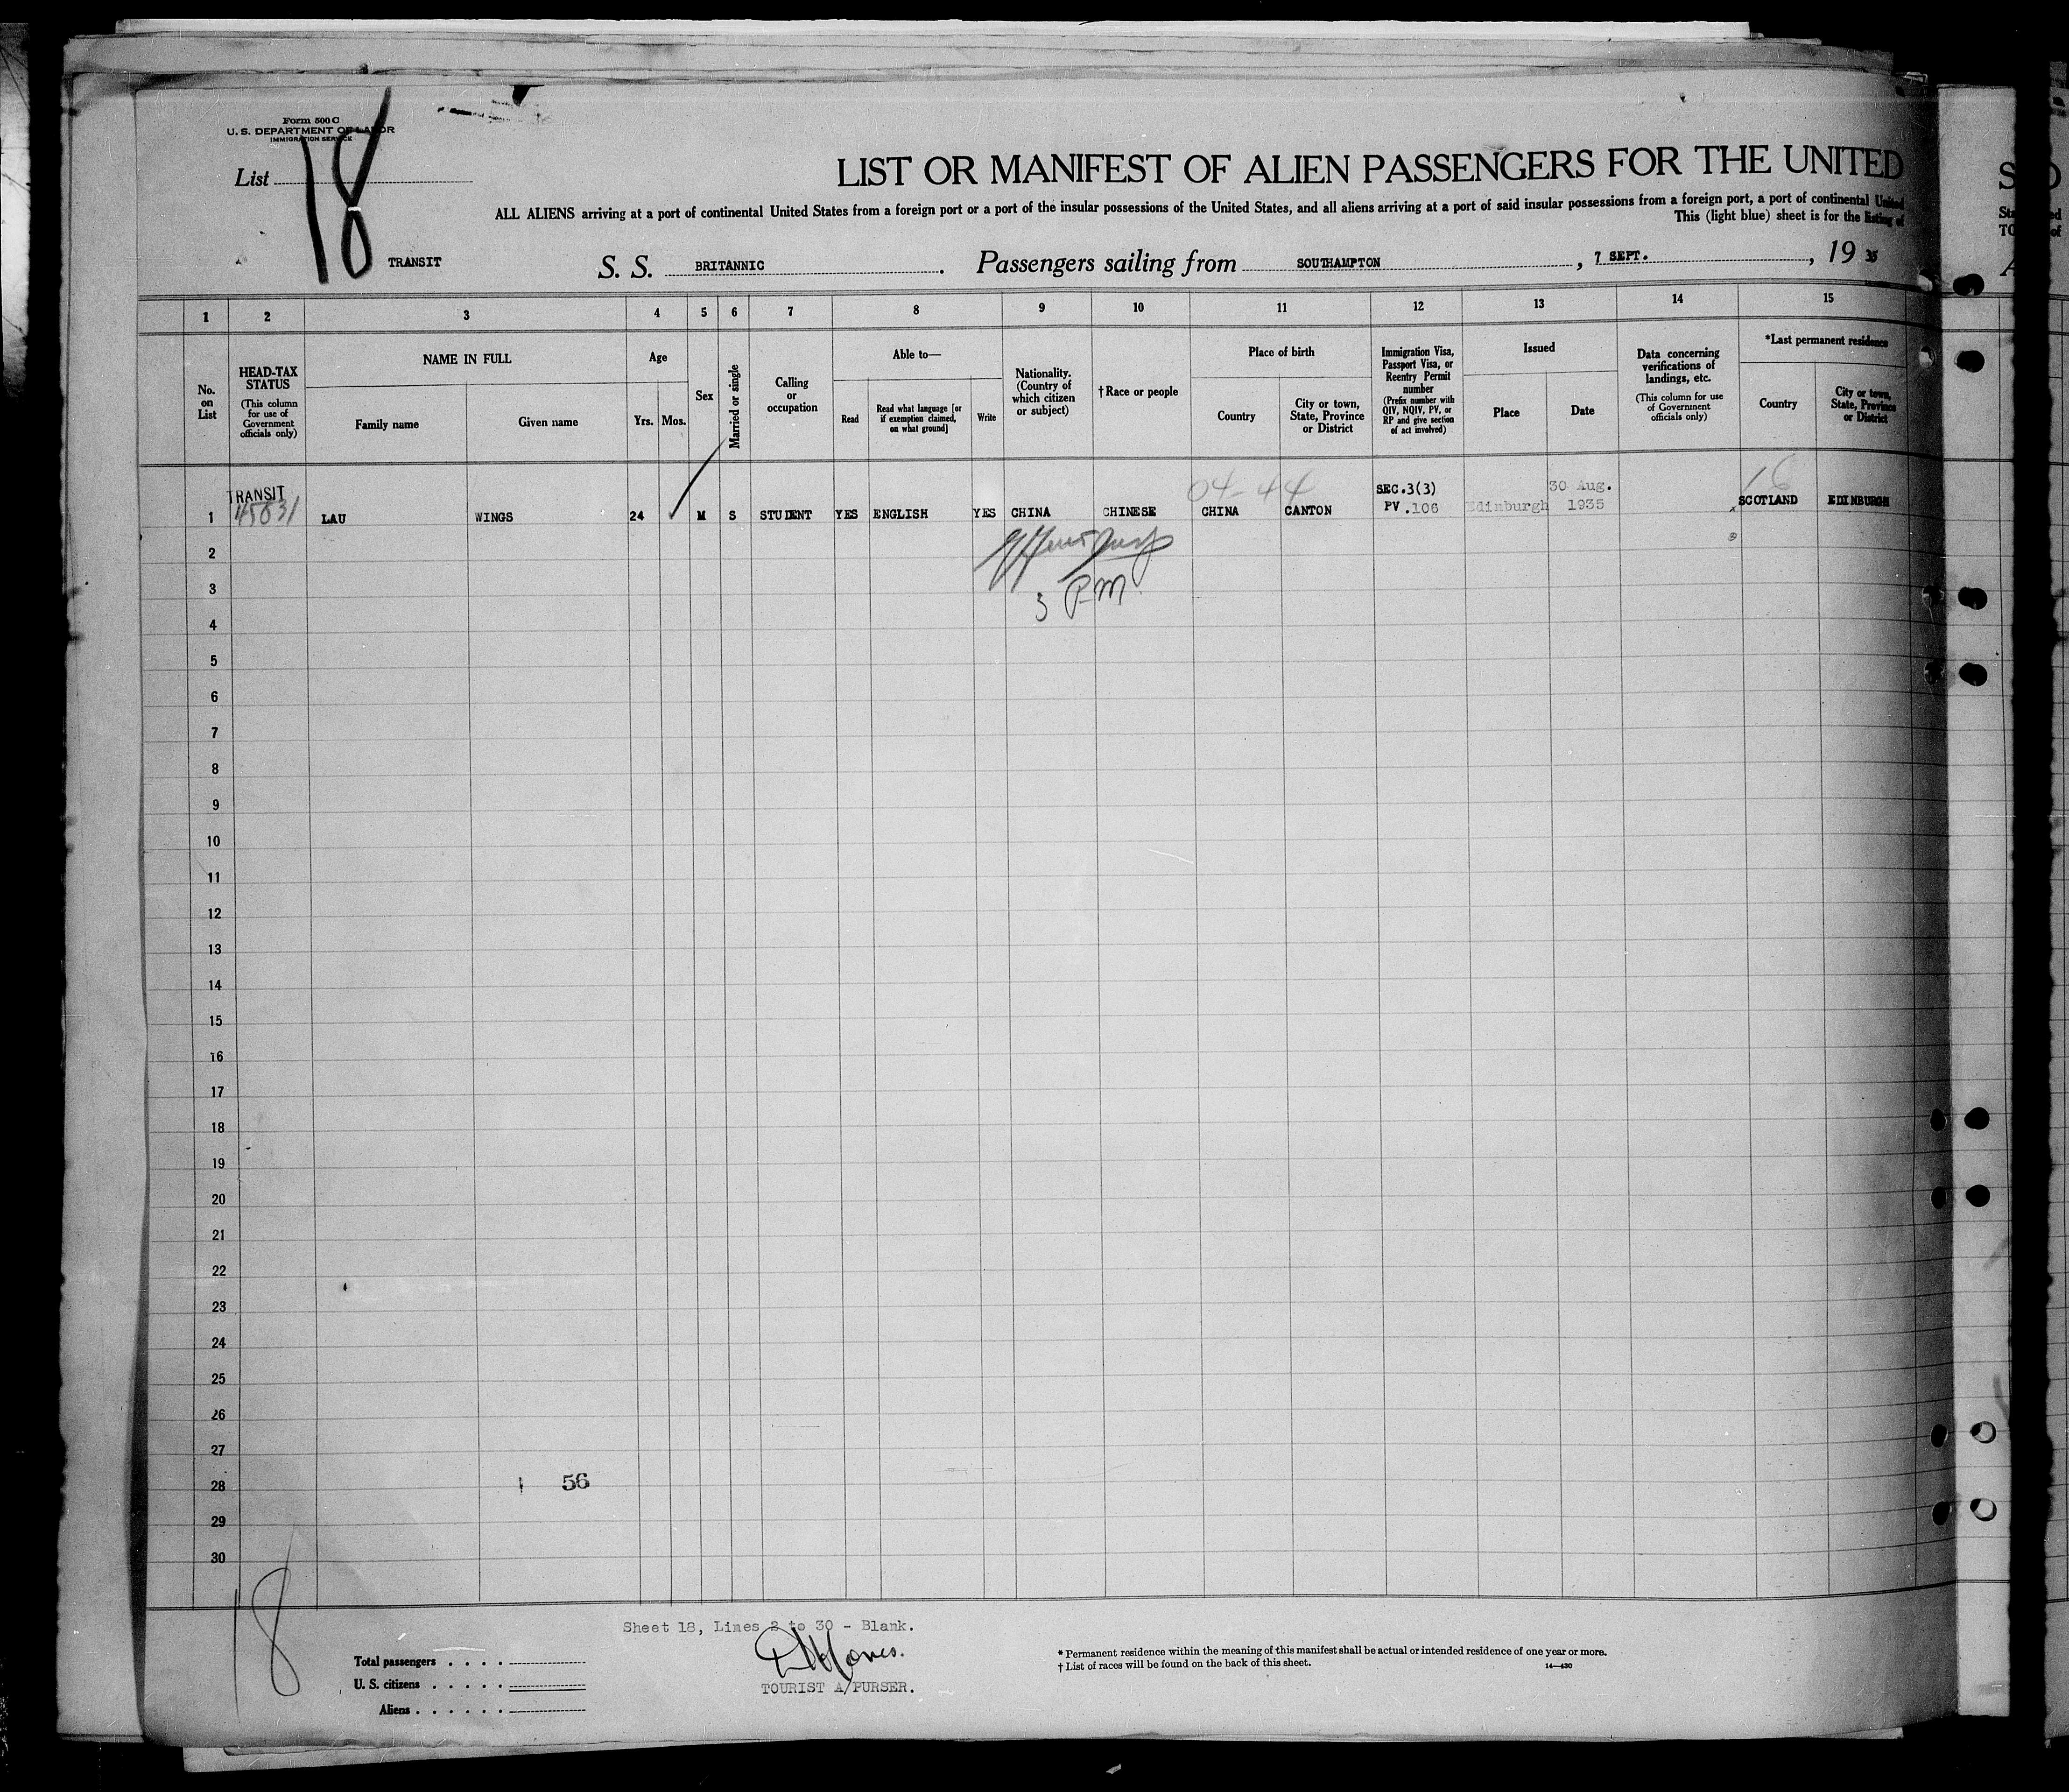 Form 500 C
U. S. DEPARTMENT OF LABOR
IMMIGRATION SERVICE
List 18
LIST OR MANIFEST OF ALIEN PASSENGERS FOR THE UNITED
ALL ALIENS arriving at a port of continental United States from a foreign port or a port of the insular possessions of the United States, and all aliens arriving at a port of said insular possessions from a foreign port, a port of continental United
This (light blue) sheet is for the listing of
TRANSIT S. S. BRITANNIC. Passengers sailing from SOUTHAMPTON, 7 SEPT., 19 35
1 2 3 4 5 6 7 8 9 10 11 12 13 14 15
No. on List
HEAD-TAX STATUS (This column for use of Government officials only)
NAME IN FULL
Family name
Given name
Age
Yrs.
Mos.
Sex
Married or single
Calling or occupation
Able to—
Read
Read what language [or if exemption claimed, on what ground]
Write
Nationality. (Country of which citizen or subject)
†Race or people
Place of birth
Country
City or town, State, Province or District
Immigration Visa, Passport Visa, or Reentry Permit number (Prefix number with QIV, NQIV, PV, or RP and give section of act involved)
Issued
Place
Date
Data concerning verifications of landings, etc. (This column for use of Government officials only)
*Last permanent residence
Country
City or town, State, Province or District
04-44
16
1 TRANSIT 45031 LAU WINGS 24 M S STUDENT YES ENGLISH YES CHINA CHINESE CHINA CANTON SEC.3(3) PV.106 Edinburgh 30 Aug. 1935 SCOTLAND EDINBURGH
2
3 3 PM
4
5
6
7
8
9
10
11
12
13
14
15
16
17
18
19
20
21
22
23
24
25
26
27
28 56
29
30
18
Sheet 18, Lines 2 to 30 - Blank.
TOURIST A/PURSER.
Total passengers
U. S. citizens
Aliens
* Permanent residence within the meaning of this manifest shall be actual or intended residence of one year or more.
† List of races will be found on the back of this sheet.
14—430